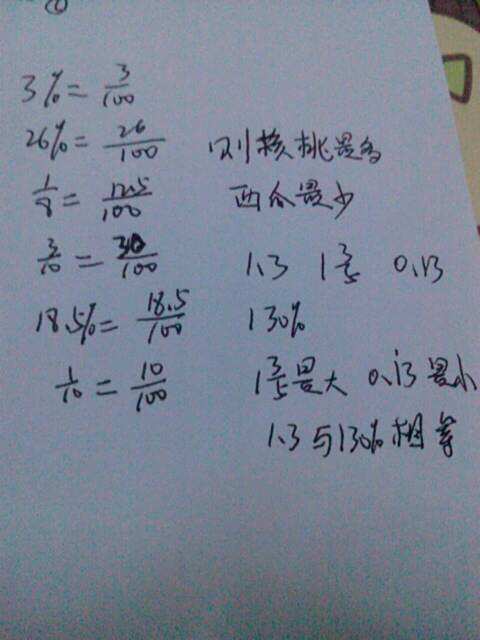 ②
3%=3/100
26%=26/100
1/8=12.5/100
3/10=30/100
18.5%=18.5/100
1/10=10/100
则核桃最多
西瓜最少
1.3 1 3/5 0.13
130%
1 3/5最大 0.i3最小
1.3与130%相等